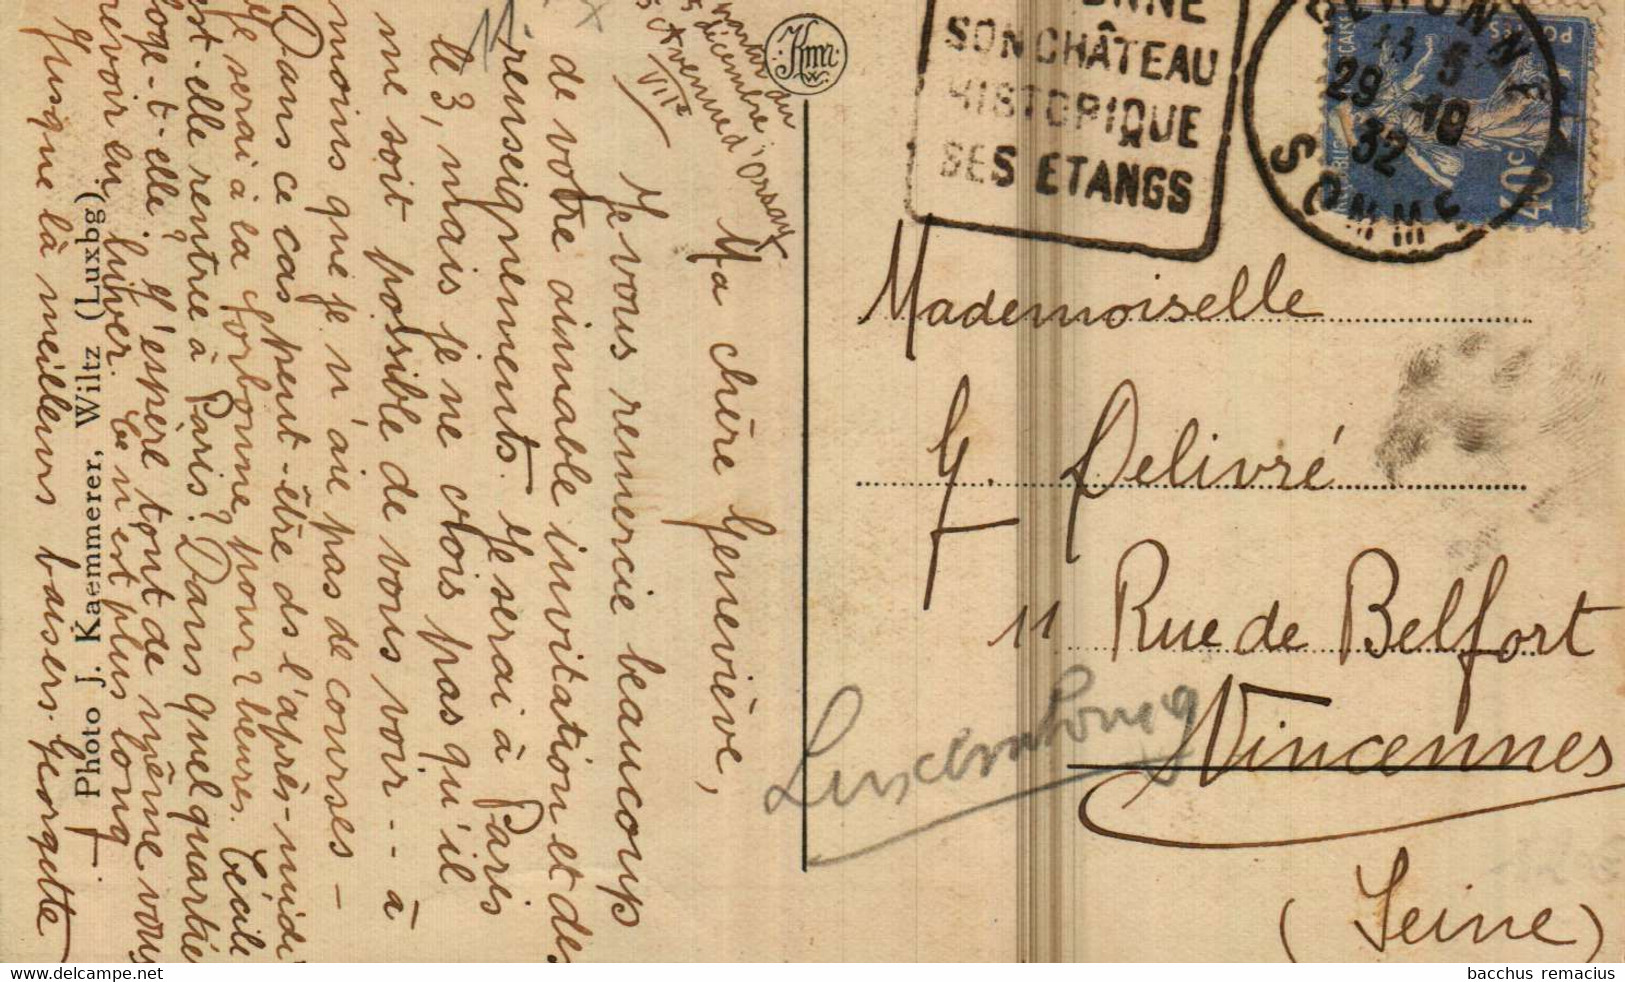 Ma chère Geneviève,
Je vous remercie beaucoup
de votre aimable invitation et des
renseignements. Je serai à Paris
le 3, mais je ne crois pas qu'il
me soit possible de vous voir -- à
moins que je n'aie pas de courses -
Dans ce cas peut-être ds l'après-midi
Je serai à la Sorbonne pour 2 heures. Cécile
est-elle rentrée à Paris? Dans quel quartier
loge-t-elle? J'espère tout de même vous
revoir cet hiver. Ce n'est plus long.
Jusque là meilleurs baisers. Georgette
décembre
Avenue d'Orsay
VIIe
Photo J. Kaemmerer, Wiltz (Luxbg).
Kma
W.
SON CHÂTEAU
HISTORIQUE
SES ETANGS
PERONNE
13 5
29 -10
32
SOMME
POSTES
40c
Mademoiselle
G. Delivré
11 Rue de Belfort
Vincennes
(Seine
Luxembourg
bacchus remacius